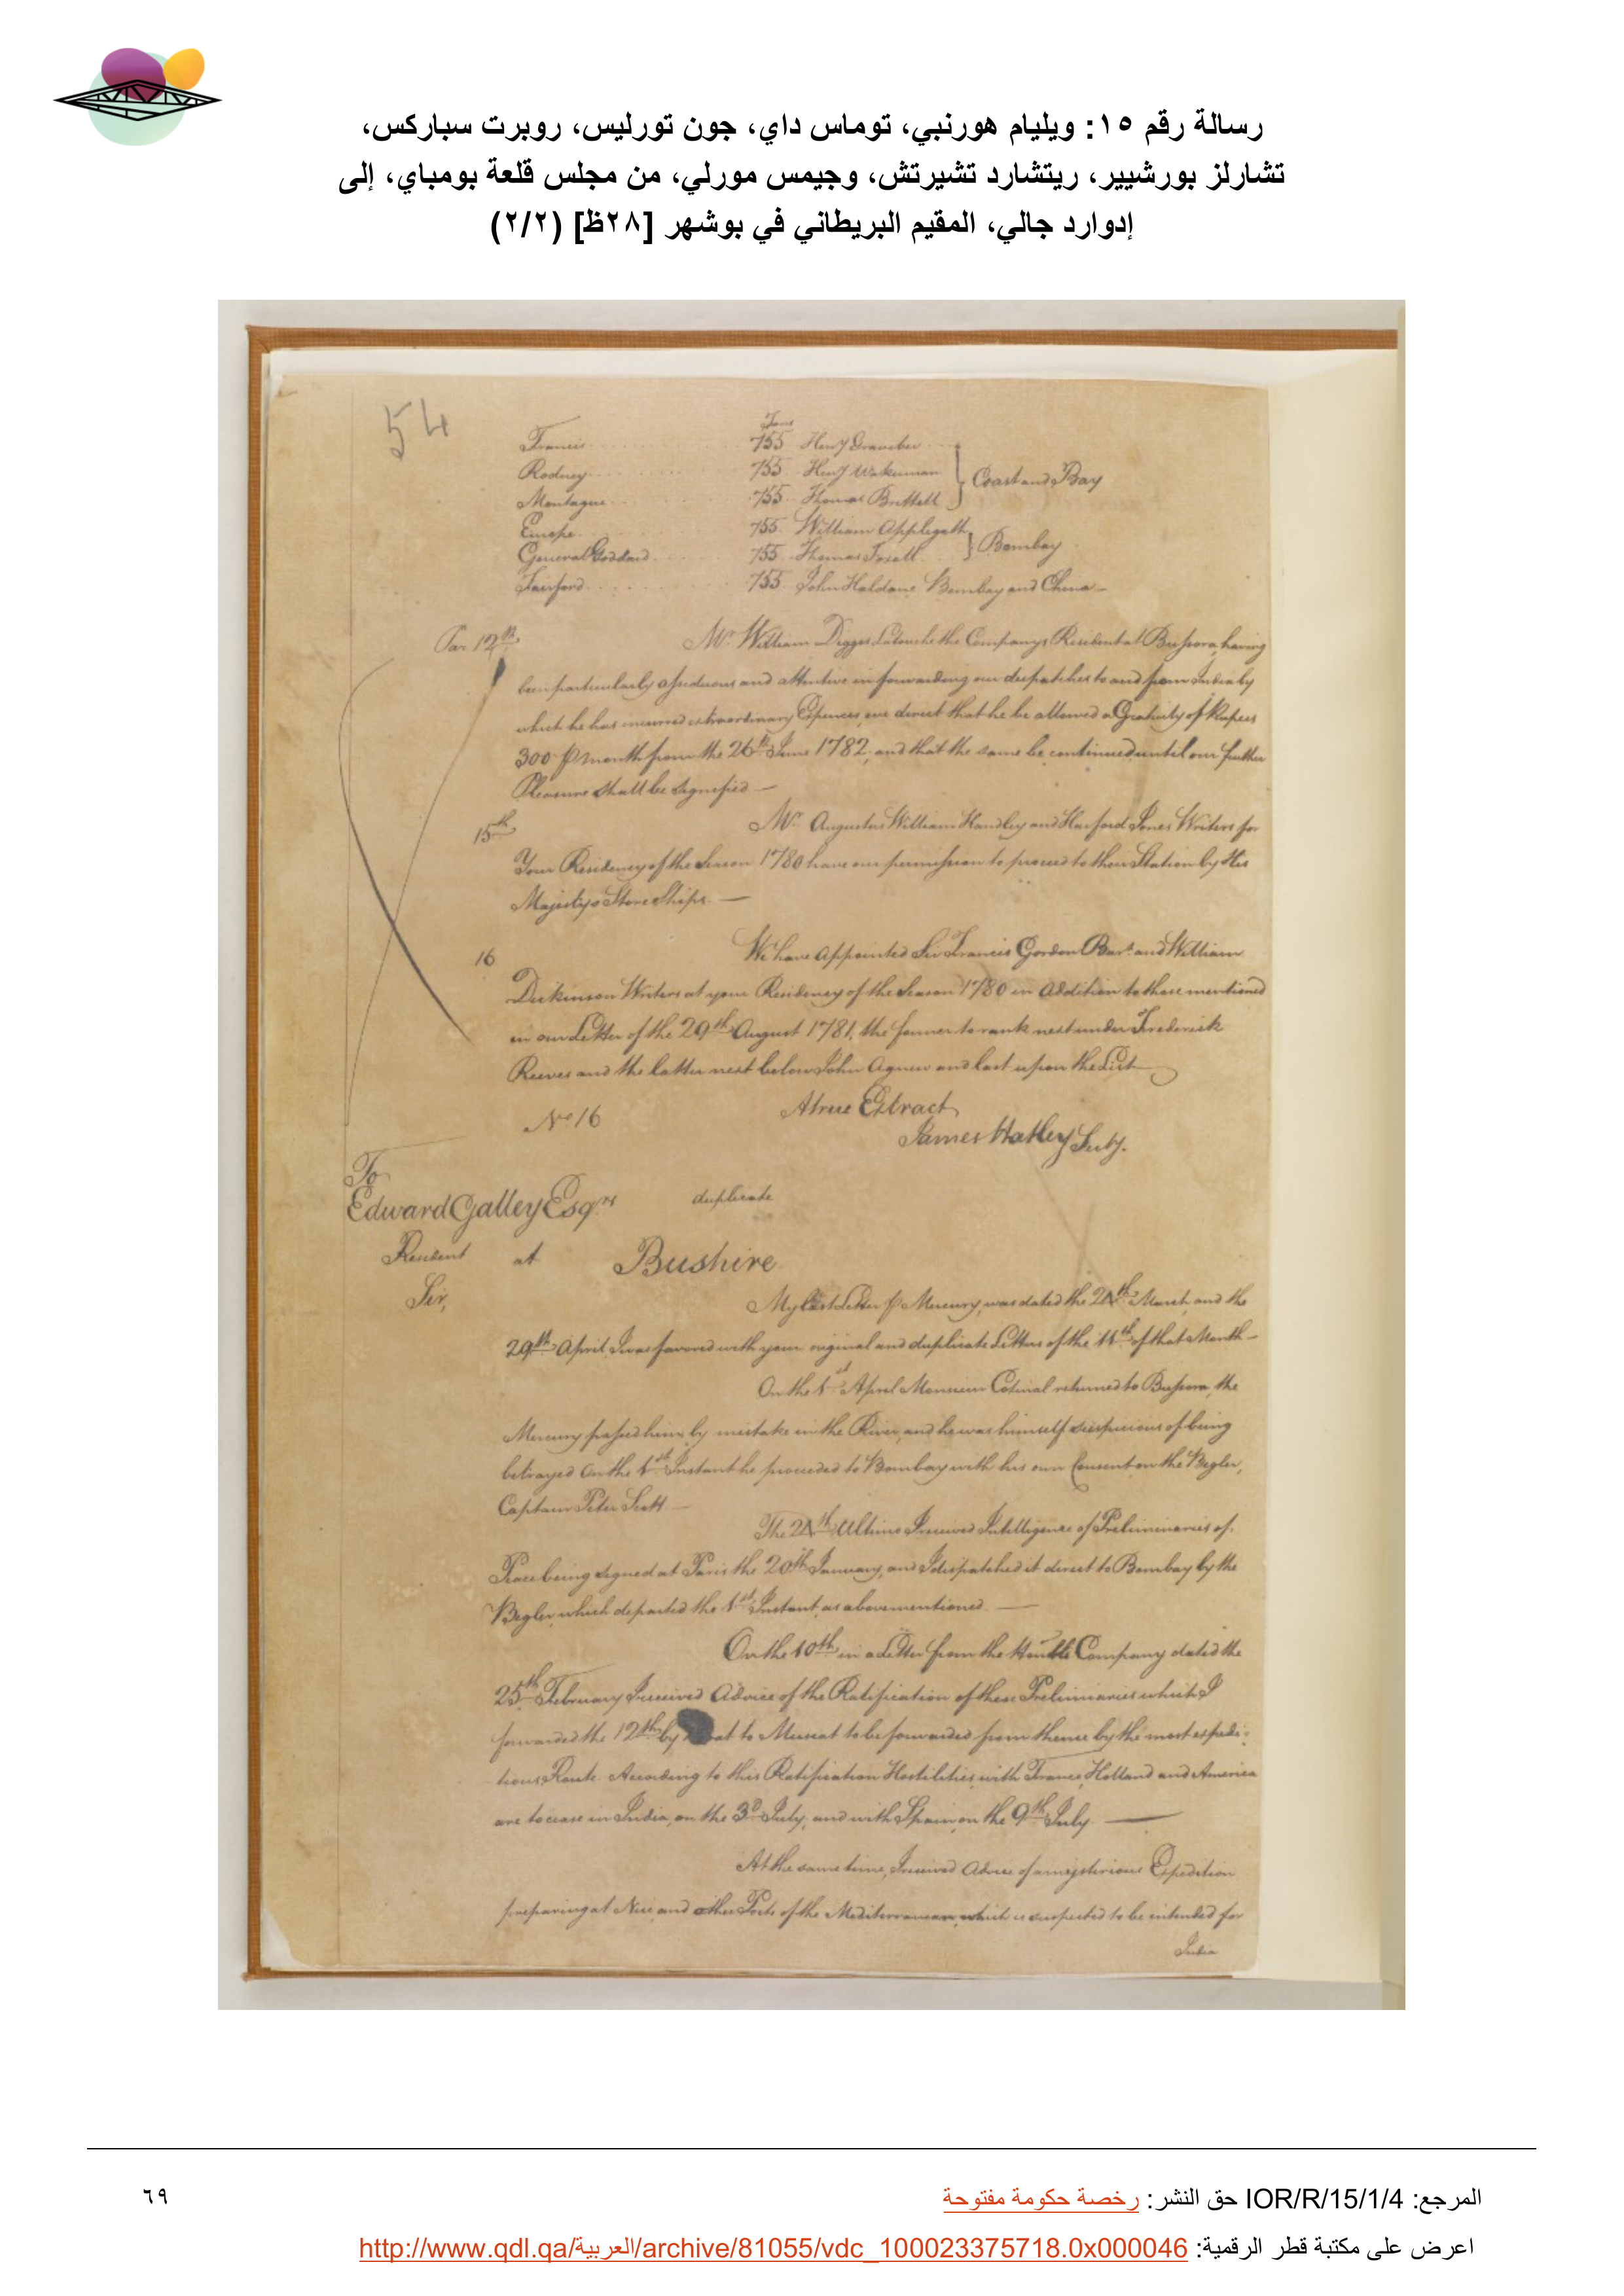 رسالة رقم ١٥: ويليام هورنبي، توماس داي، جون تورليس، روبرت سباركس،
تشارلز بورشيير، ريتشارد تشيرتش، وجيمس مورلي، من مجلس قلعة بومباي، إلى
إدوارد جالي، المقيم البريطاني في بوشهر [٢٨ظ] (٢/٢)
54
Tons
Francis 755 Henry
Rodney 755 Henry Wakeman
Montague 755 Thomas Brettell } Coast and Bay
Europe 755 William Applegath
General Goddard 755 Thomas Foxall } Bombay
Fairford 755 John Haldane Bombay and China
Par 12th Mr. William Digges Latouche the Companys Resident at Bussora, having
been particularly assiduous and attentive in forwarding our despatches to and from India by
which he has incurred extraordinary Expences, we direct that he be allowed a Gratuity of Rupees
300 p month from the 26th June 1782, and that the same be continued until our further
Pleasure shall be signified —
15th Mr. Augustus William Handley and Harford Jones Writers for
Your Residency of the Season 1780 have our permission to proceed to their Station by His
Majestys Store Ships. —
16 We have appointed Sir Francis Gordon Bart. and William
Dickinson Writers at your Residency of the Season 1780 in Addition to those mentioned
in our Letter of the 29th August 1781, the former to rank next under Frederick
Reeves and the latter next below John Agnew and last upon the List
A true Extract
No. 16
James Hatley Secty.
To
Edward Galley Esqrs duplicate
Resident at Bushire
Sir,
My last Letter p Mercury, was dated the 24th March, and the
29th April I was favored with your original and duplicate Letters of the 11th of that Month —
On the 1st April Monsieur returned to Bussora, the
Mercury passed him by mistake in the River, and he was himself suspicious of being
betrayed On the 1st Instant he proceeded to Bombay with his own Consent on the Begler,
Captain Peter Scott. —
The 24th Ultimo I received Intelligence of Preliminaries of
Peace being signed at Paris the 20th January, and I dispatched it direct to Bombay by the
Begler, which departed the 1st Instant, as abovementioned. —
On the 10th in a Letter from the Honble Company dated the
25th February I received Advice of the Ratification of these Preliminaries which I
forwarded the 12th by to Muscat to be forwarded from thence by the most expedi-
tious Route. According to this Ratification Hostilities with France, Holland and America
are to cease in India, on the 3d July, and with Spain, on the 9th July —
At the same time, I received Advice of a mysterious Expedition
preparing at Nice and other Ports of the Mediterranean, which is suspected to be intended for
India
المرجع: IOR/R/15/1/4 حق النشر: رخصة حكومة مفتوحة
٦٩
اعرض على مكتبة قطر الرقمية: http://www.qdl.qa/العربية/archive/81055/vdc_100023375718.0x000046